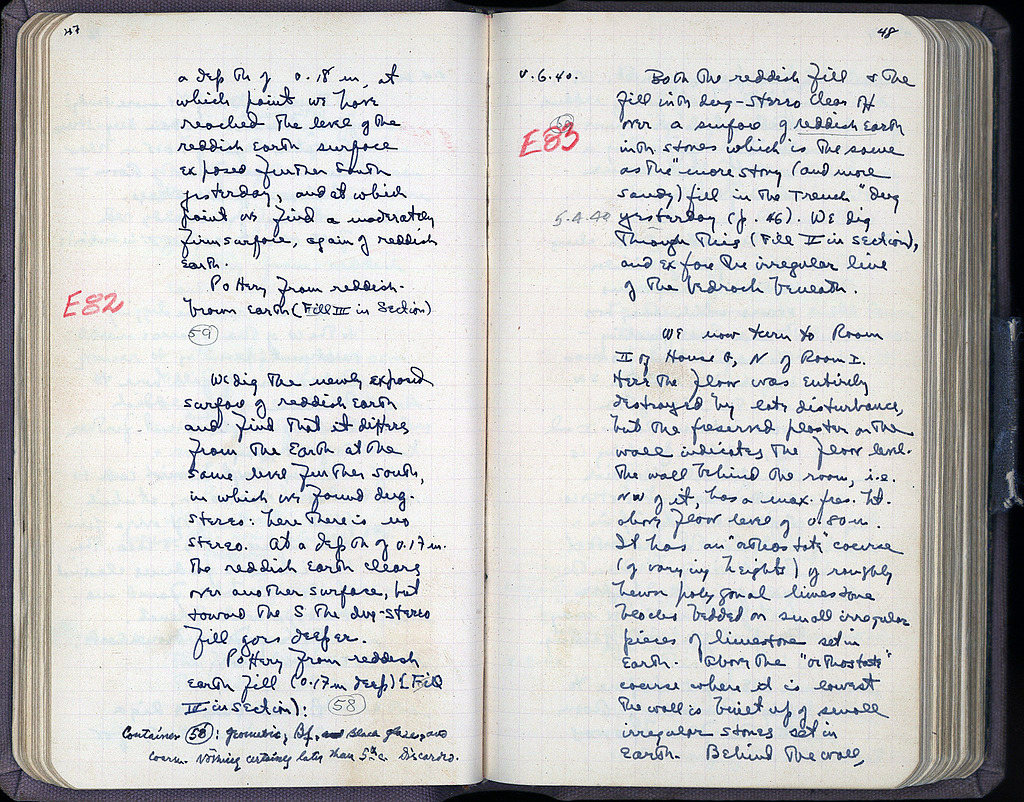 47
a depth of 0.18 m, at
which point we have
reached the level of the
reddish earth surface
exposed further south
yesterday, and at which
point we find a moderately
firm surface, again of reddish
earth.
E82
Pottery from reddish-
brown earth (Fill III in Section)
59
We dig the newly exposed
surface of reddish earth
and find that it differs
from the earth at the
same level further south,
in which we found dug-
stereo: here there is no
stereo. At a depth of 0.17 m.
the reddish earth clears
over another surface, but
toward the S the dug-stereo
fill goes deeper.
Pottery from reddish
earth fill (0.17 m deep) [Fill
in Section): 58
Container 58: Geometric, Bf, Black glaze, and
coarse. Nothing certainly later than 5th c. Discarded.
48
V.6.40. Both the reddish fill & the
fill with dug-stereo clear off
E83
over a surface of reddish earth
with stones which is the same
as the "more stony (and more
sandy) fill in the trench" dug
5.4.40
yesterday (p. 46). We dig
through this (Fill II in section),
and expose the irregular line
of the bedrock beneath.
We now turn to Room
II of House O, N of Room I.
Here the floor was entirely
destroyed by late disturbance,
but the preserved plaster on the
wall indicates the floor level.
The wall behind the room, i.e.
NW of it, has a max. pres. ht.
above floor level of 0.80 m.
It has an "orthostate" course
(of varying heights) of roughly
hewn polygonal limestone
blocks bedded on small irregular
pieces of limestone set in
earth. Above the "orthostate"
course where it is lowest
the wall is built up of small
irregular stones set in
earth. Behind the wall,